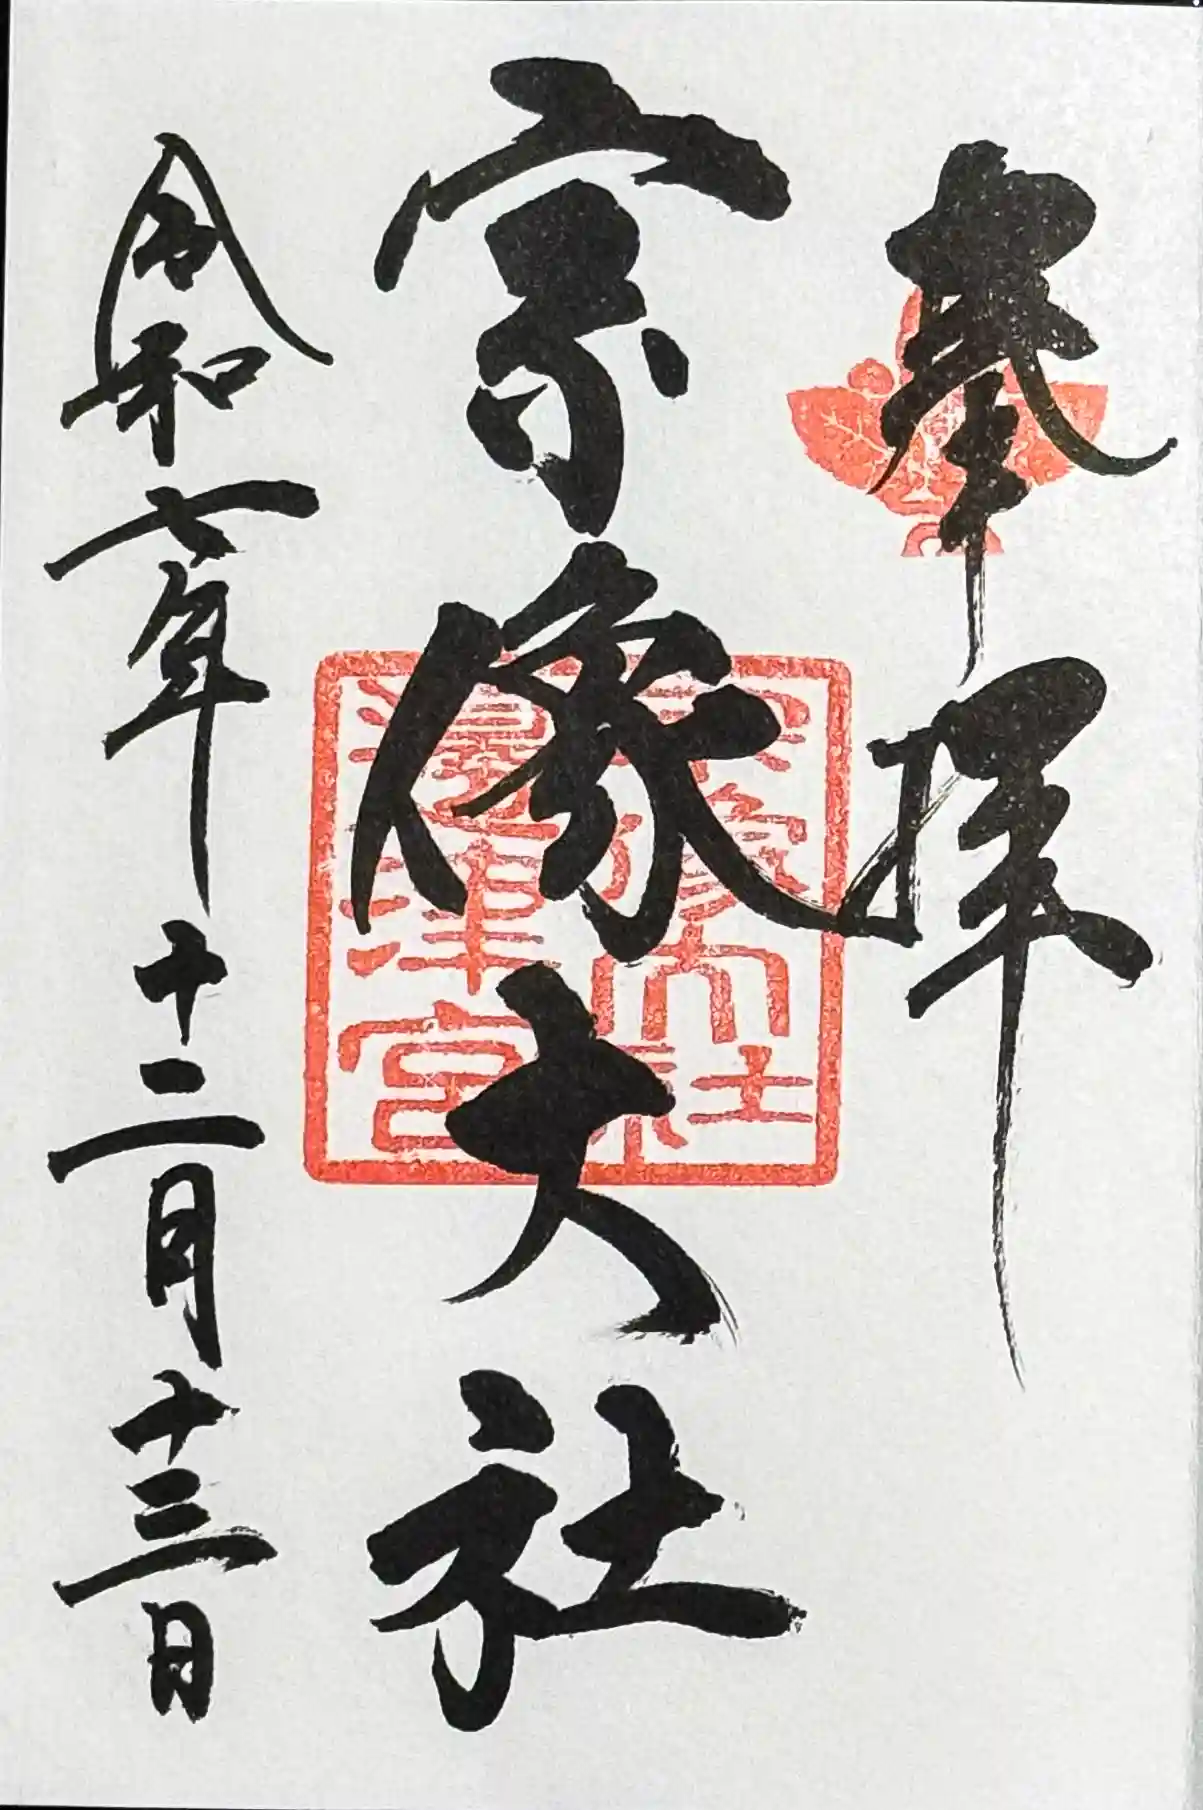 奉拝
宗像大社
宗像大社
邊津宮
令和七年十二月十三日